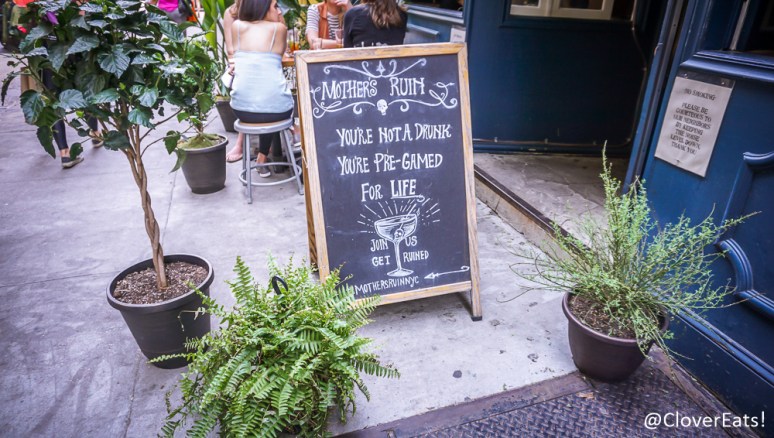 MOTHERS RUIN
YOU'RE NOT A DRUNK
YOU'RE PRE-GAMED
FOR LIFE
JOIN US
GET RUINED
@MOTHERSRUINNYC
NO SMOKING
PLEASE BE
COURTEOUS TO
OUR NEIGHBORS
BY KEEPING
THE NOISE
LEVEL DOWN.
THANK YOU
@CloverEats!